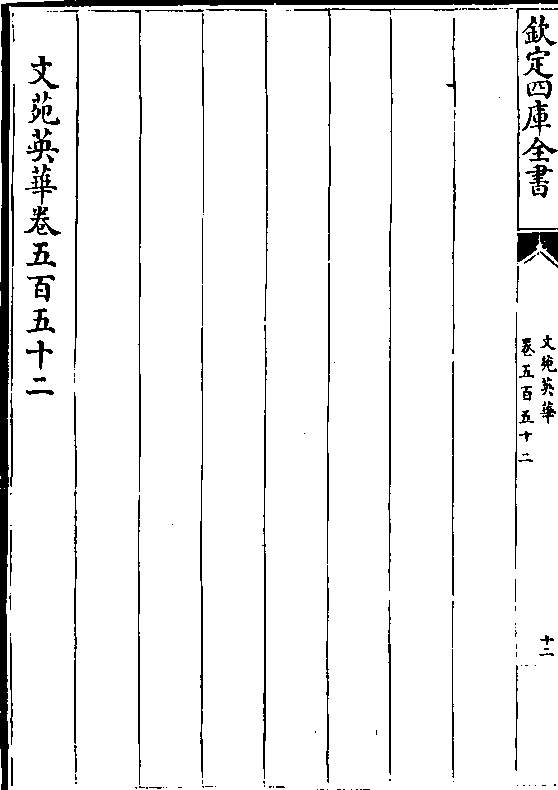 欽定四庫全書
文苑英華
卷五百五十二
十二
文苑英華卷五百五十二